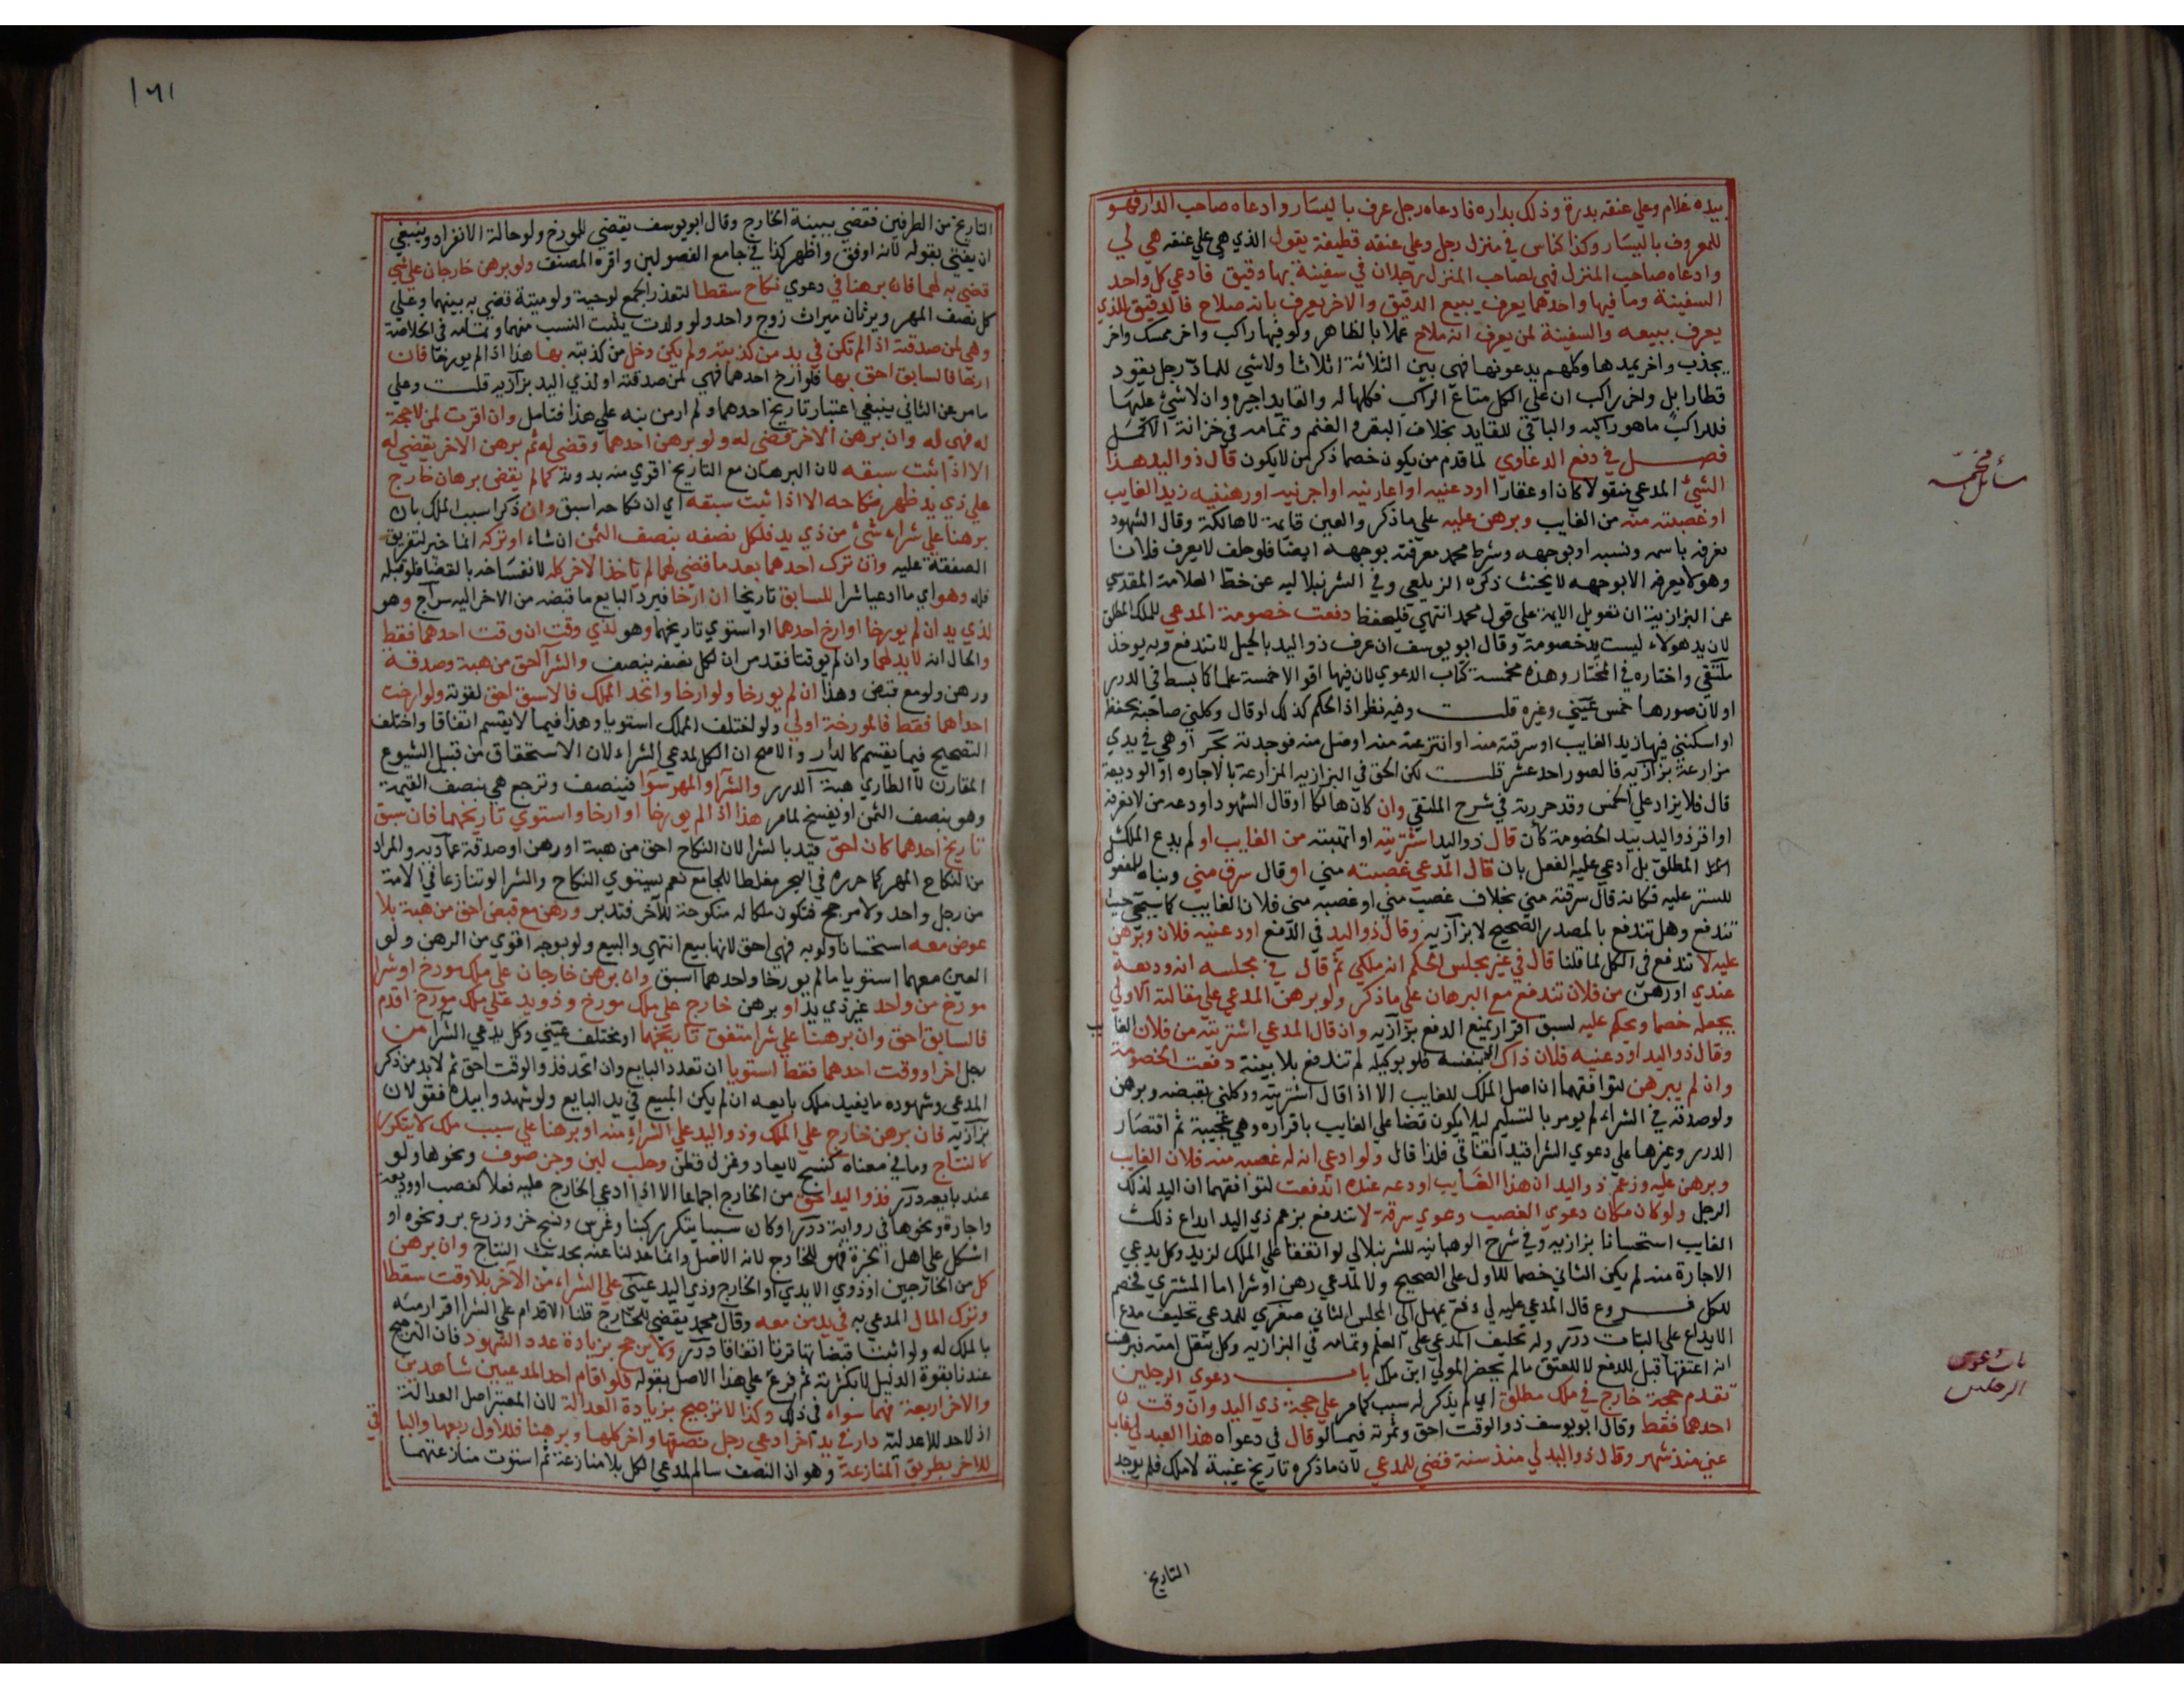 بيده غلام وعلي عنقه بدرة وذلك بداره فادعاه رجل عرف باليسار وادعاه صاحب الدار فهو
للمعروف باليسار وكذا كناس في منزل رجل وعلي عنقه قطيفة يقول الذي هي علي عنقه هي لي
وادعاه صاحب المنزل فهي لصاحب المنزل رجلان في سفينة بها دقيق فادعي كل واحد
السفينة وما فيها واحدهما يعرف ببيع الدقيق والاخر يعرف بانه ملاح فالدقيق للذي
يعرف ببيعه والسفينة لمن يعرف انه ملاح عملا بالظاهر ولو فيها راكب واخر ممسك واخر
يجذب واخر يمدها وكلهم يدعونها فهي بين الثلاثة اثلاثا ولا شي للماد رجل يقود
قطار ابل واخر راكب ان علي الكل متاع الراكب فكلها له والقايد اجيره وان لا شي عليها
فللراكب ما هو راكبه والباقي للقايد بخلاف البقر والغنم وتمامه في خزانة الاكمل
فصل في دفع الدعاوي لما قدم من يكون خصما ذكر من لا يكون قال ذو اليد هذا
الشي المدعي منقولا كان او عقارا اودعنيه او اعارنيه او اجرنيه او رهننيه زيد الغايب
او غصبته منه من الغايب وبرهن عليه علي ما ذكر والعين قايمة لا هالكة وقال الشهود
نعرفه باسمه ونسبه او بوجهه وشرط محمد معرفته بوجهه ايضا فلو حلف لا يعرف فلانا
وهو لا يعرفه الا بوجهه لا يحنث ذكره الزيلعي وفي الشرنبلاليه عن خط العلامة المقدسي
عن البزازية ان تعويل الايمة علي قول محمد انتهي فليحفظ دفعت خصومة المدعي للملك المطلق
لان يد هولاء ليست يد خصومة وقال ابو يوسف ان عرف ذو اليد بالحيل لا تندفع وبه يوخذ
ملتقي واختاره في المختار وهذه مخمسة كتاب الدعوي لان فيها اقوالا خمسة علما كما بسط في الدرر
او لان صورها خمس عيني وغيره قلت وفيه نظر اذ الحكم كذلك لو قال وكلني صاحبه بحفظه
او اسكنني فيها زيد الغايب او سرقته منه او انتزعته منه او ضل منه فوجدته بحر او هي في يدي
مزارعة بزازيه فالصور احد عشر قلت لكن الحق في البزازيه المزارعة بالاجاره او الوديعة
قال فلا يزاد علي الخمس وقد حررته في شرح الملتقي وان كان هالكا او قال الشهود اودعه من لا نعرفه
او اقر ذو اليد بيد الخصومة كان قال ذو اليد اشتريته او اتهبته من الغايب او لم يدع الملك
المطلق بل ادعي عليه الفعل بان قال المدعي غصبته مني او قال سرق مني وبناه للمفعول
للستر عليه فكانه قال سرقته مني بخلاف غصب مني او غصبه مني فلان الغايب كما سيجي حيث
تندفع وهل تندفع بالمصدر الصحيح لا بزازيه وقال ذو اليد في الدفع اودعنيه فلان وبرهن
عليه لا تندفع في الكل لما قلنا قال في غير مجلس الحكم انه ملكي ثم قال في مجلسه انه وديعة
عندي او رهن من فلان تندفع مع البرهان علي ما ذكر ولو برهن المدعي علي مقالته الاولي
يجعله خصما ويحكم عليه لسبق اقرار يمنع الدفع بزازيه وان قال المدعي اشتريته من فلان الغايب
وقال ذو اليد اودعنيه فلان ذاك بنفسه فلو بوكيله لم تندفع بلا بينة دفعت الخصومة
وان لم يبرهن لتوافقهما ان اصل الملك للغايب الا اذا قال اشتريته ووكلني بقبضه وبرهن
ولو صدقه في الشراء لم يومر بالتسليم ليلا يكون قضا علي الغايب باقراره وهي عجيبة ثم اقتصار
الدرر وغيرها علي دعوي الشرا قيد اتفاقي فلذا قال ولو ادعي انه له غصبه منه فلان الغايب
وبرهن عليه وزعم ذو اليد ان هذا الغايب اودعه عنده اندفعت لتوافقهما ان اليد لذلك
الرجل ولو كان مكان دعوي الغصب دعوي سرقة لا تندفع بزعم ذي اليد ايداع ذلك
الغايب استحسانا بزازيه وفي شرح الوهبانيه للشرنبلالي لو اتفقا علي الملك لزيد وكل يدعي
الاجارة منه لم يكن الثاني خصما للاول علي الصحيح ولا لمدعي رهن او شرا اما المشتري فخصم
للكل فروع قال المدعي عليه لي دفع يمهل الي المجلس الثاني صغري للمدعي تحليف مدع
الايداع علي البتات درر وله تحليف المدعي علي العلم وتمامه في البزازيه وكل بنقل امته فبرهنت
انه اعتقها قبل للدفع لا للعتق ما لم يحضر المولي ابن ملك باب دعوي الرجلين
تقدم حجة خارج في ملك مطلق اي لم يذكر له سبب كما مر علي حجة ذي اليد وان وقت
احدهما فقط وقال ابو يوسف ذو الوقت احق وثمرته فيما لو قال في دعواه هذا العبد لي غاب
عني منذ شهر وقال ذو اليد لي منذ سنة قضي للمدعي لان ما ذكره تاريخ غيبة لا ملك فلم يوجد
التاريخ
مسائل مخمسة
باب دعوي
الرجلين
١٦١
التاريخ من الطرفين فقضي ببينة الخارج وقال ابو يوسف يقضي للمورخ ولو حالة الانفراد وينبغي
ان يفتي بقوله لانه اوفق واظهر كذا في جامع الفصولين واقره المصنف ولو برهن خارجان علي شي
قضي به لهما فان برهنا في دعوي نكاح سقطا لتعذر الجمع لو حية ولو ميتة قضي به بينهما وعلي
كل نصف المهر ويرثان ميراث زوج واحد ولو ولدت يثبت النسب منهما وتمامه في الخلاصة
وهي لمن صدقته اذا لم تكن في يد من كذبته ولم يكن دخل من كذبته بها هذا اذا لم يورخا فان
ارخا فالسابق احق بها فلو ارخ احدهما فهي لمن صدقته او لذي اليد بزازيه قلت وعلي
ما مر عن الثاني ينبغي اعتبار تاريخ احدهما ولم ار من نبه علي هذا فتامل وان اقرت لمن لا حجة
له فهي له وان برهن الاخر قضي له ولو برهن احدهما وقضي له ثم برهن الاخر لم يقضي له
الا اذا ثبت سبقه لان البرهان مع التاريخ اقوي منه بدونه كما لم يقض ببرهان خارج
علي ذي يد ظهر نكاحه الا اذا ثبت سبقه اي ان نكاحه اسبق وان ذكرا سبب الملك بان
برهنا علي شراء شئ من ذي يد فلكل نصفه بنصف الثمن ان شاء او تركه انما خير لتفريق
الصفقة عليه وان ترك احدهما بعد ما قضي لهما لم ياخذ الاخر كله لانفساخه بالقضا فلو قبله
فله وهو اي ما ادعيا شراه للسابق تاريخا ان ارخا فيرد البايع ما قبضه من الاخر اليه سراج وهو
لذي يد ان لم يورخا او ارخ احدهما او استوي تاريخهما وهو لذي وقت ان وقت احدهما فقط
والحال انه لا يد لهما وان لم يوقتا فقد مر ان لكل نصفه بنصف والشرا احق من هبة وصدقة
ورهن ولو مع قبض وهذا ان لم يورخا ولو ارخا واتحد الملك فالاسبق احق لقوته ولو ارخت
احداهما فقط فالمورخة اولي ولو اختلف الملك استويا وهذا فيما لا يقسم اتفاقا واختلف
التصحيح فيما يقسم كالدار والاصح ان الكل لمدعي الشراء لان الاستحقاق من قبيل الشيوع
المقارن لا الطاري هبة الدرر والشرا والمهر سوا فينصف وترجع هي بنصف القيمة
وهو بنصف الثمن او يفسخ لما مر هذا اذا لم يورخا او ارخا واستوي تاريخهما فان سبق
تاريخ احدهما كان احق قيد بالشرا لان النكاح احق من هبة او رهن او صدقة عماديه والمراد
من النكاح المهر كما حرره في البحر مغلطا للجامع نعم يستوي النكاح والشرا لو تنازعا في الامة
من رجل واحد ولا مرجح فتكون ملكا له منكوحة للاخر فتدبر ورهن مع قبض احق من هبة بلا
عوض معه استحسانا ولو به فهي احق لانها بيع انتهي والبيع ولو بوجه اقوي من الرهن ولو
العين معهما استويا ما لم يورخا واحدهما اسبق وان برهن خارجان علي ملك مورخ او شرا
مورخ من واحد غير ذي يد او برهن خارج علي ملك مورخ وذو يد علي ملك مورخ اقدم
فالسابق احق وان برهنا علي شرا متفق تاريخهما او مختلف عيني وكل يدعي الشرا من
رجل اخر او وقت احدهما فقط استويا ان تعدد البايع وان اتحد فذو الوقت احق ثم لا بد من ذكر
المدعي وشهوده ما يفيد ملك بايعه ان لم يكن المبيع في يد البايع ولو شهدوا بيده فقولان
بزازيه فان برهن خارج علي الملك وذو اليد علي الشراء منه او برهنا علي سبب ملك لا يتكرر
كالنتاج وما في معناه كنسج لا يعاد وغزل قطن وحلب لبن وجز صوف ونحوها ولو
عند بايعه درر فذو اليد احق من الخارج اجماعا الا اذا ادعي الخارج عليه فعلا كغصب او وديعة
واجارة ونحوها في رواية درر او كان سببا يتكرر كبنا وغرس ونسج خز وزرع بر ونحوه او
اشكل علي اهل الخبرة فهو للخارج لانه الاصل وانما عدلنا عنه بحديث النتاج وان برهن
كل من الخارجين او ذوي الايدي او الخارج وذي اليد عيني علي الشراء من الاخر بلا وقت سقطا
وترك المال المدعي به في يد من معه وقال محمد يقضي للخارج قلنا الاقدام علي الشرا اقرار منه
بالملك له ولو اثبتا قبضا تهاترتا اتفاقا درر ولا يرجح بزيادة عدد الشهود فان الترجيح
عندنا بقوة الدليل لا بكثرته ثم فرع علي هذا الاصل بقوله فلو اقام احد المدعيين شاهدين
والاخر اربعة فهما سواء في ذلك وكذا لا ترجيح بزيادة العدالة لان المعتبر اصل العدالة
اذ لا حد للاعدلية دار في يد اخر ادعي رجل نصفها واخر كلها وبرهنا فللاول ربعها والباقي
للاخر بطريق المنازعة وهو ان النصف سالم لمدعي الكل بلا منازعة ثم استوت منازعتهما